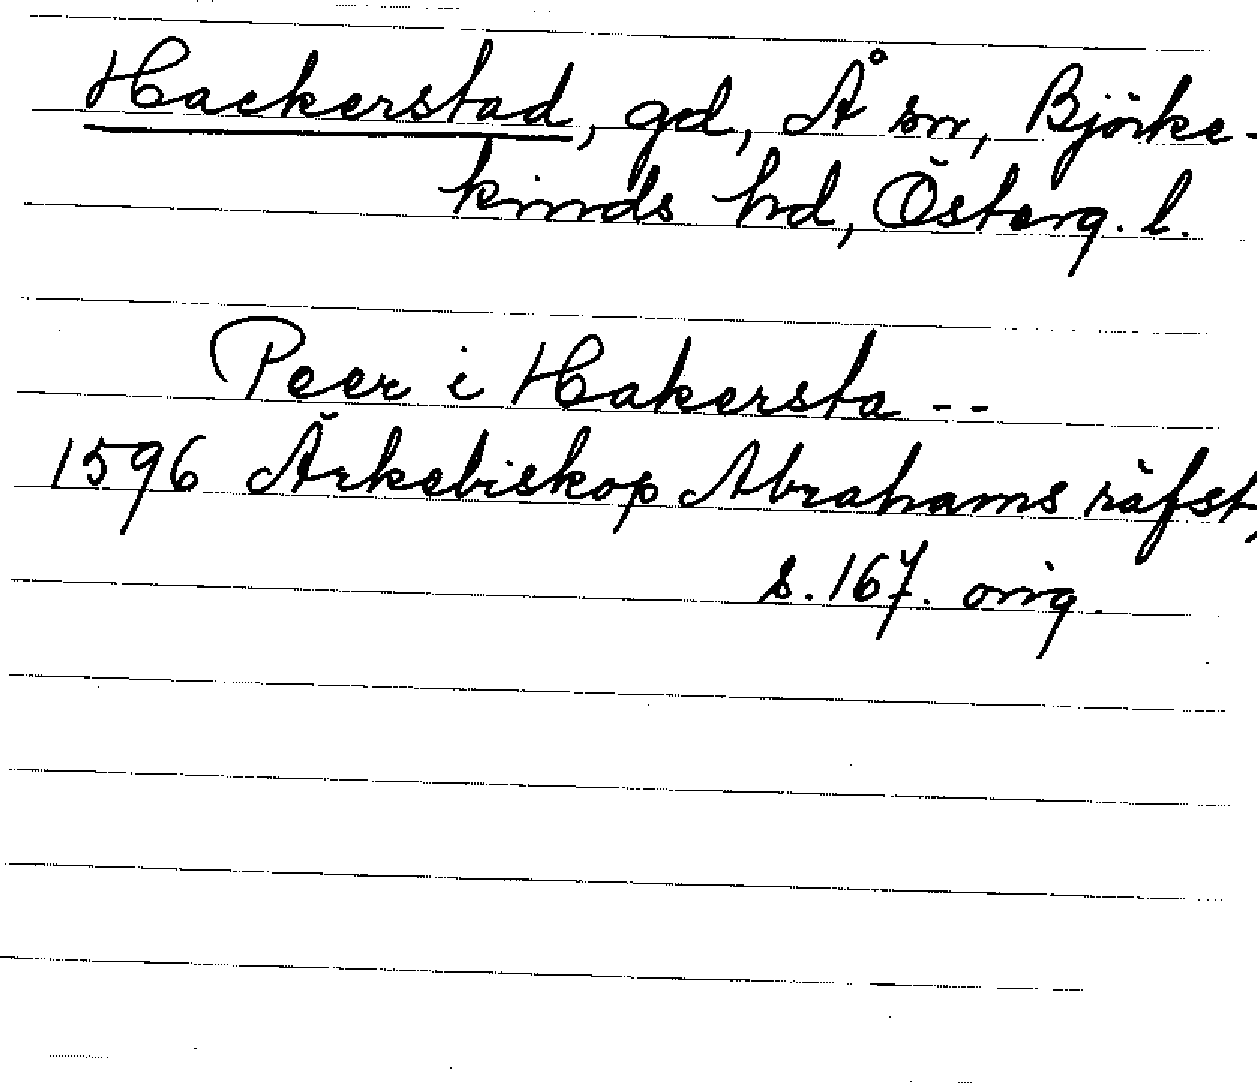 Hackerstad, gd, Å sn, Björke-
kinds hd, Österg. l.
Peer i Hakersta --
1596 Ärkebiskop Abrahams räfst,
s. 167. orig.